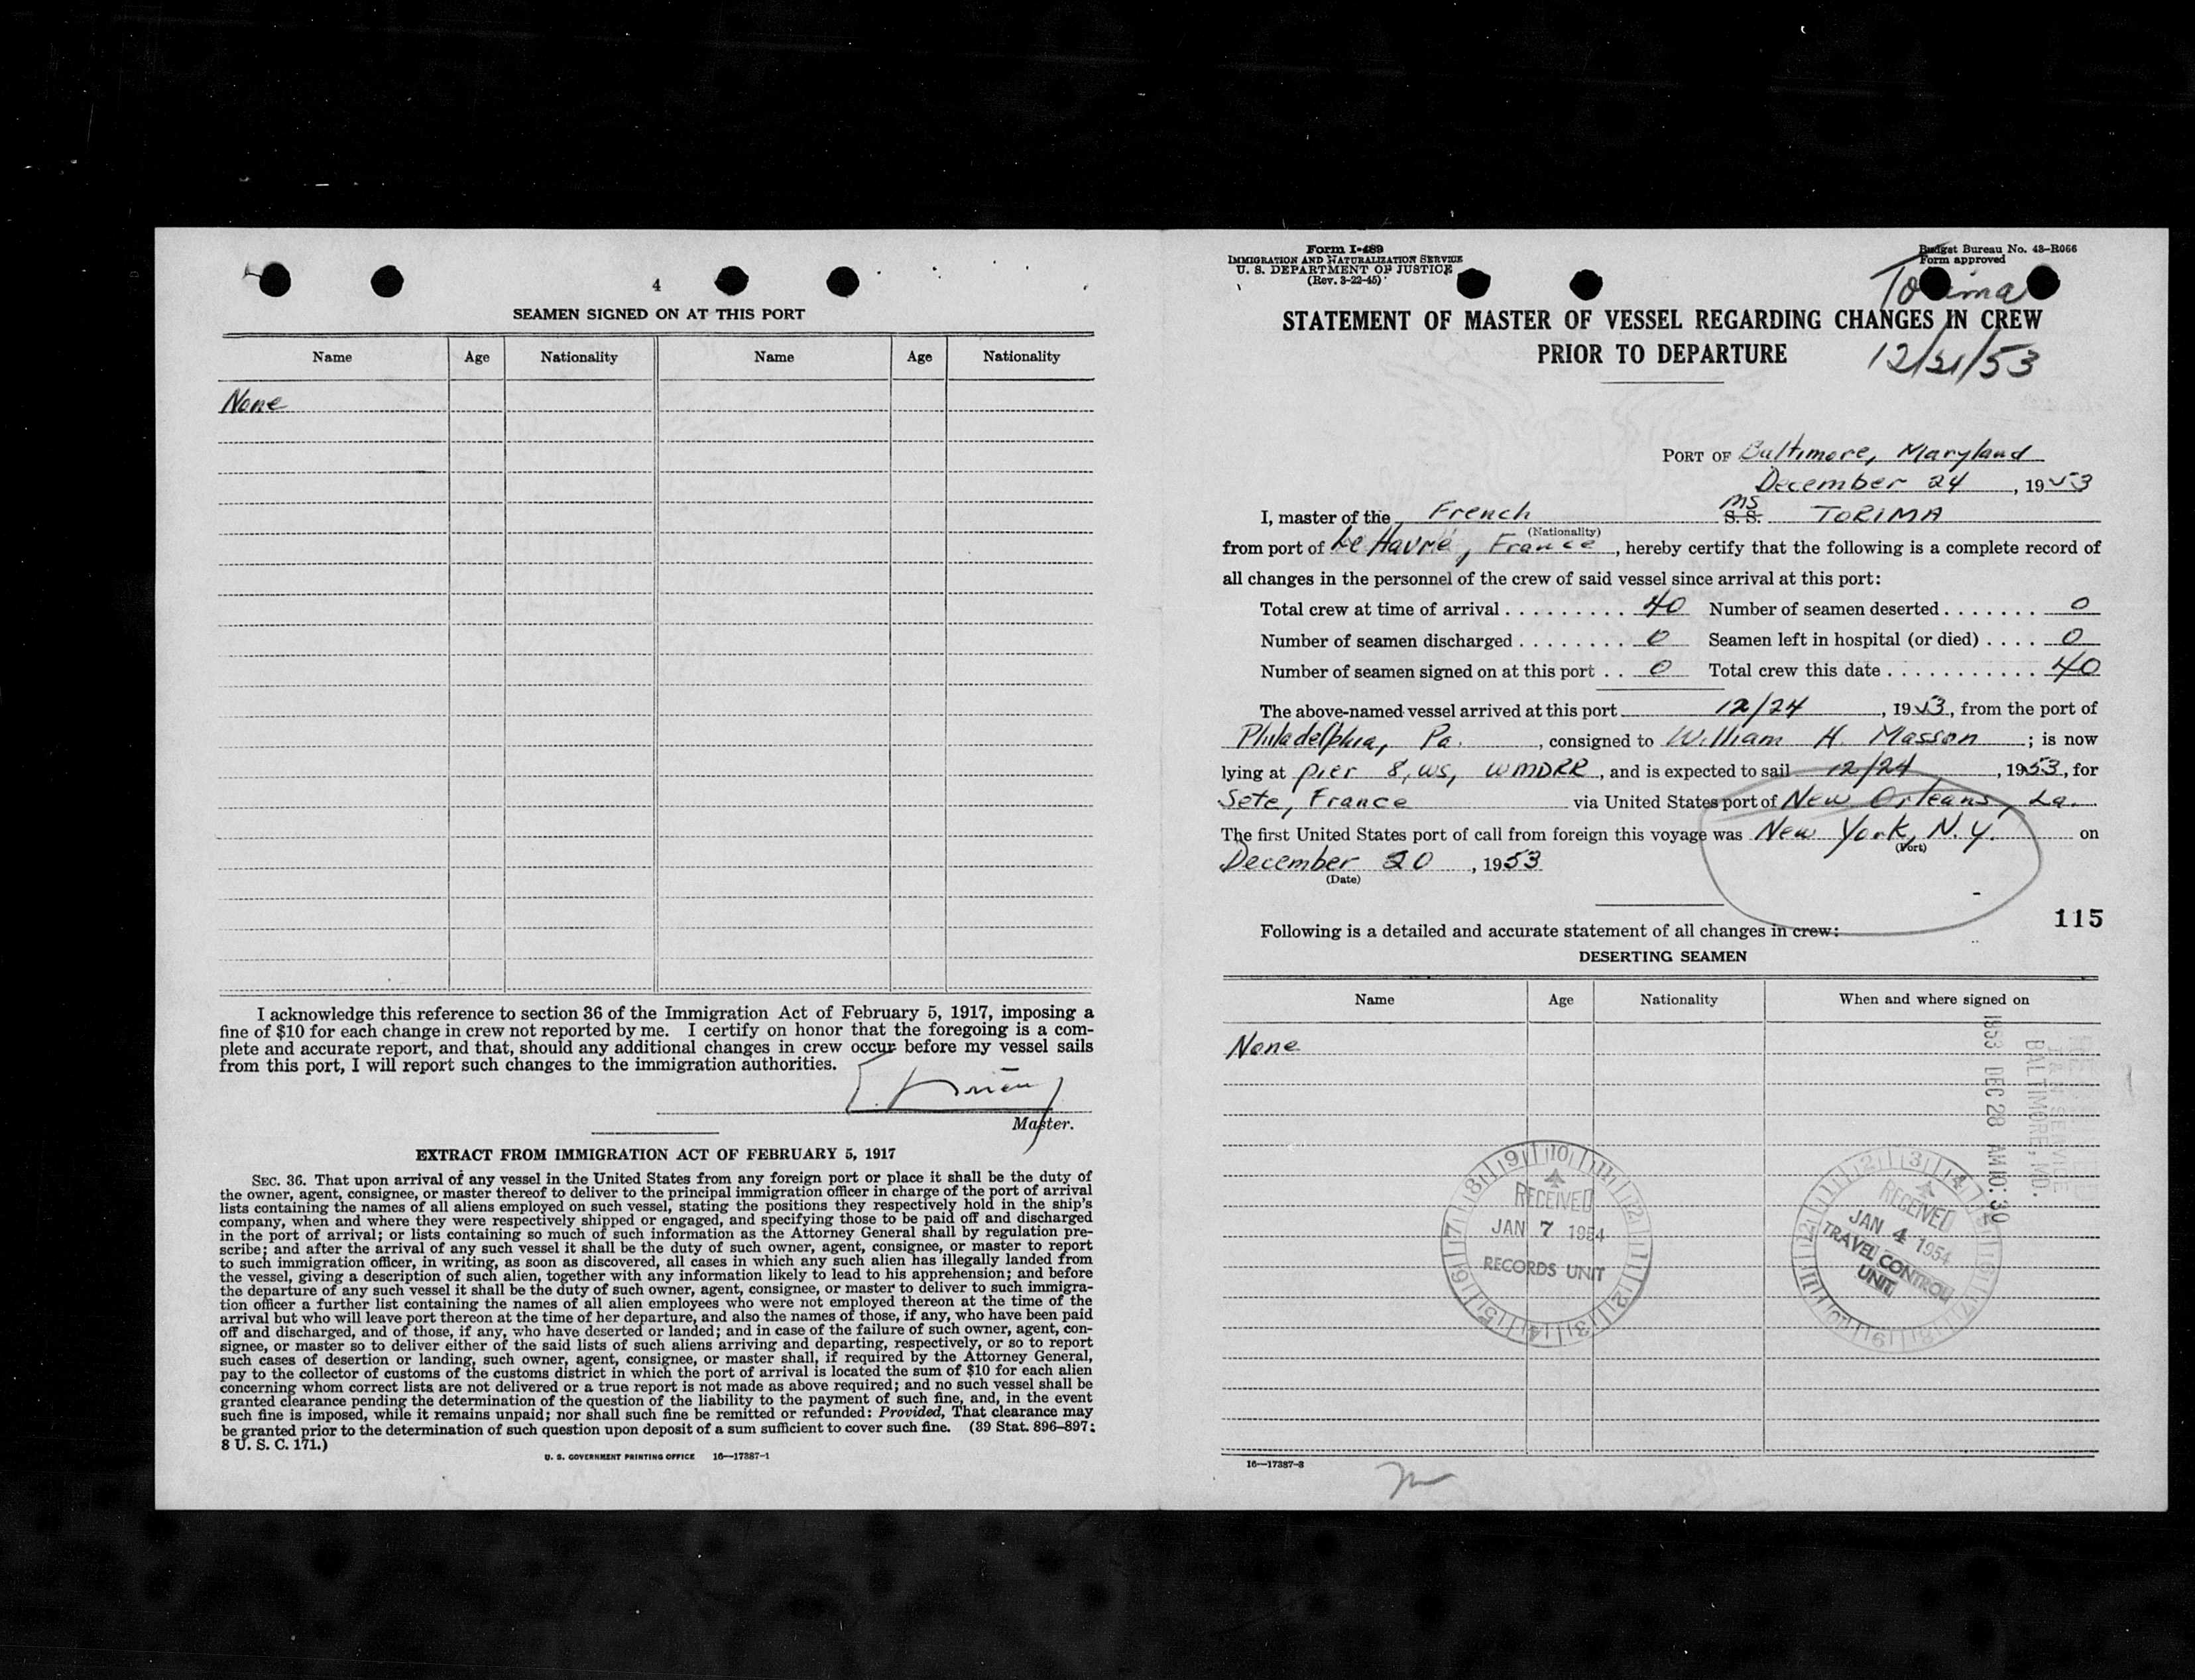 4
SEAMEN SIGNED ON AT THIS PORT
Name Age Nationality Name Age Nationality
None
I acknowledge this reference to section 36 of the Immigration Act of February 5, 1917, imposing a
fine of $10 for each change in crew not reported by me. I certify on honor that the foregoing is a com-
plete and accurate report, and that, should any additional changes in crew occur before my vessel sails
from this port, I will report such changes to the immigration authorities.
Master.
EXTRACT FROM IMMIGRATION ACT OF FEBRUARY 5, 1917
SEC. 36. That upon arrival of any vessel in the United States from any foreign port or place it shall be the duty of
the owner, agent, consignee, or master thereof to deliver to the principal immigration officer in charge of the port of arrival
lists containing the names of all aliens employed on such vessel, stating the positions they respectively hold in the ship's
company, when and where they were respectively shipped or engaged, and specifying those to be paid off and discharged
in the port of arrival; or lists containing so much of such information as the Attorney General shall by regulation pre-
scribe; and after the arrival of any such vessel it shall be the duty of such owner, agent, consignee, or master to report
to such immigration officer, in writing, as soon as discovered, all cases in which any such alien has illegally landed from
the vessel, giving a description of such alien, together with any information likely to lead to his apprehension; and before
the departure of any such vessel it shall be the duty of such owner, agent, consignee, or master to deliver to such immigra-
tion officer a further list containing the names of all alien employees who were not employed thereon at the time of the
arrival but who will leave port thereon at the time of her departure, and also the names of those, if any, who have been paid
off and discharged, and of those, if any, who have deserted or landed; and in case of the failure of such owner, agent, con-
signee, or master so to deliver either of the said lists of such aliens arriving and departing, respectively, or so to report
such cases of desertion or landing, such owner, agent, consignee, or master shall, if required by the Attorney General,
pay to the collector of customs of the customs district in which the port of arrival is located the sum of $10 for each alien
concerning whom correct lists are not delivered or a true report is not made as above required; and no such vessel shall be
granted clearance pending the determination of the question of the liability to the payment of such fine, and, in the event
such fine is imposed, while it remains unpaid; nor shall such fine be remitted or refunded: Provided, That clearance may
be granted prior to the determination of such question upon deposit of a sum sufficient to cover such fine. (39 Stat. 896–897;
8 U. S. C. 171.)
U. S. GOVERNMENT PRINTING OFFICE 16—17387-1
Form I-489
IMMIGRATION AND NATURALIZATION SERVICE
U. S. DEPARTMENT OF JUSTICE
(Rev. 3-22-45)
Budget Bureau No. 43-R066
Form approved
Torima
STATEMENT OF MASTER OF VESSEL REGARDING CHANGES IN CREW
PRIOR TO DEPARTURE
12/21/53
PORT OF Baltimore, Maryland
December 24, 1953
I, master of the French MS S. S. TORIMA
(Nationality)
from port of Le Havre, France, hereby certify that the following is a complete record of
all changes in the personnel of the crew of said vessel since arrival at this port:
Total crew at time of arrival . . . . . . . . . 40 Number of seamen deserted . . . . . . . 0
Number of seamen discharged . . . . . . . . 0 Seamen left in hospital (or died) . . . . 0
Number of seamen signed on at this port . . 0 Total crew this date . . . . . . . . . . . 40
The above-named vessel arrived at this port 12/24, 1953, from the port of
Philadelphia, Pa., consigned to William H. Masson; is now
lying at pier 8, ws, WMDRR, and is expected to sail 12/24, 1953, for
Sete, France via United States port of New Orleans, La.
The first United States port of call from foreign this voyage was New York, N.Y. on
(Port)
December 20, 1953
(Date)
115
Following is a detailed and accurate statement of all changes in crew:
DESERTING SEAMEN
Name Age Nationality When and where signed on
None
1953 DEC 28 AM 10:30
BALTIMORE, MD.
RECEIVED
JAN 7 1954
RECORDS UNIT
RECEIVED
JAN 4 1954
TRAVEL CONTROL
UNIT
16—17387-3